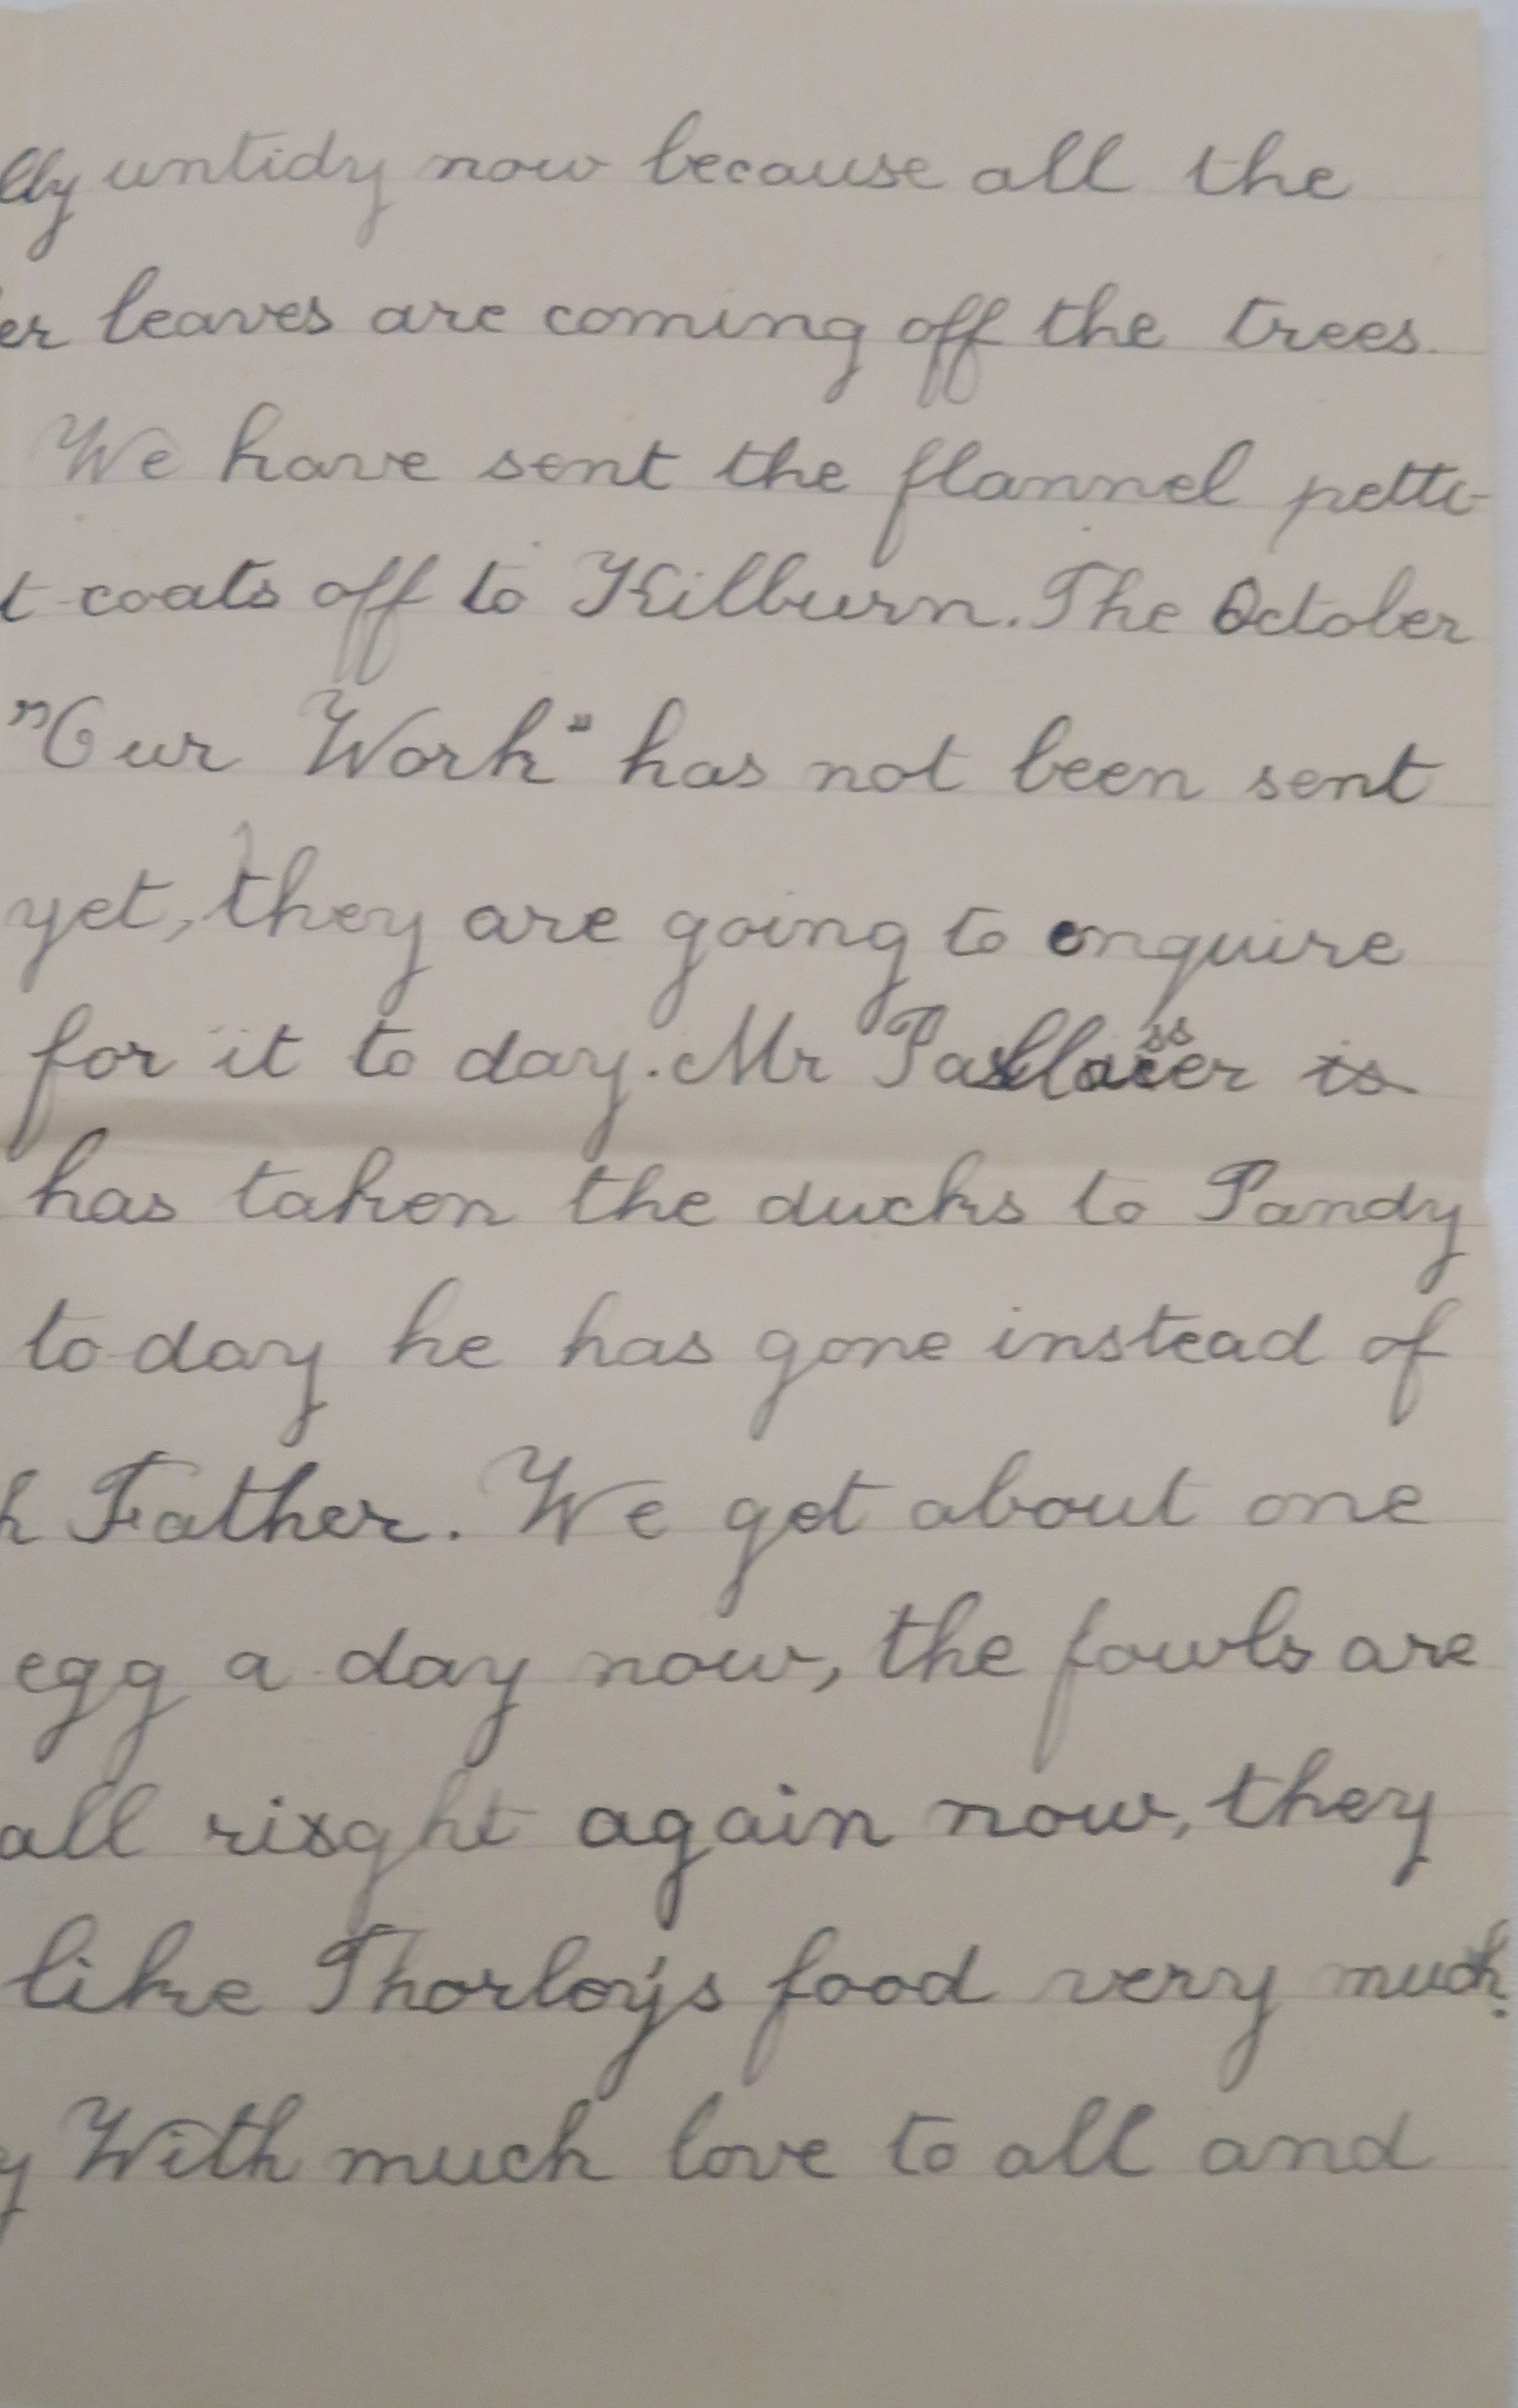 lly untidy now because all the
er leaves are coming off the trees.
We have sent the flannel petti-
t coats off to Kilburn. The October
"Our Work" has not been sent
yet, they are going to enquire
for it to day. Mr is
has taken the ducks to Pandy
to-day he has gone instead of
h Father. We get about one
egg a day now, the fowls are
all risght again now, they
like Thorley's food very much.
y With much love to all and